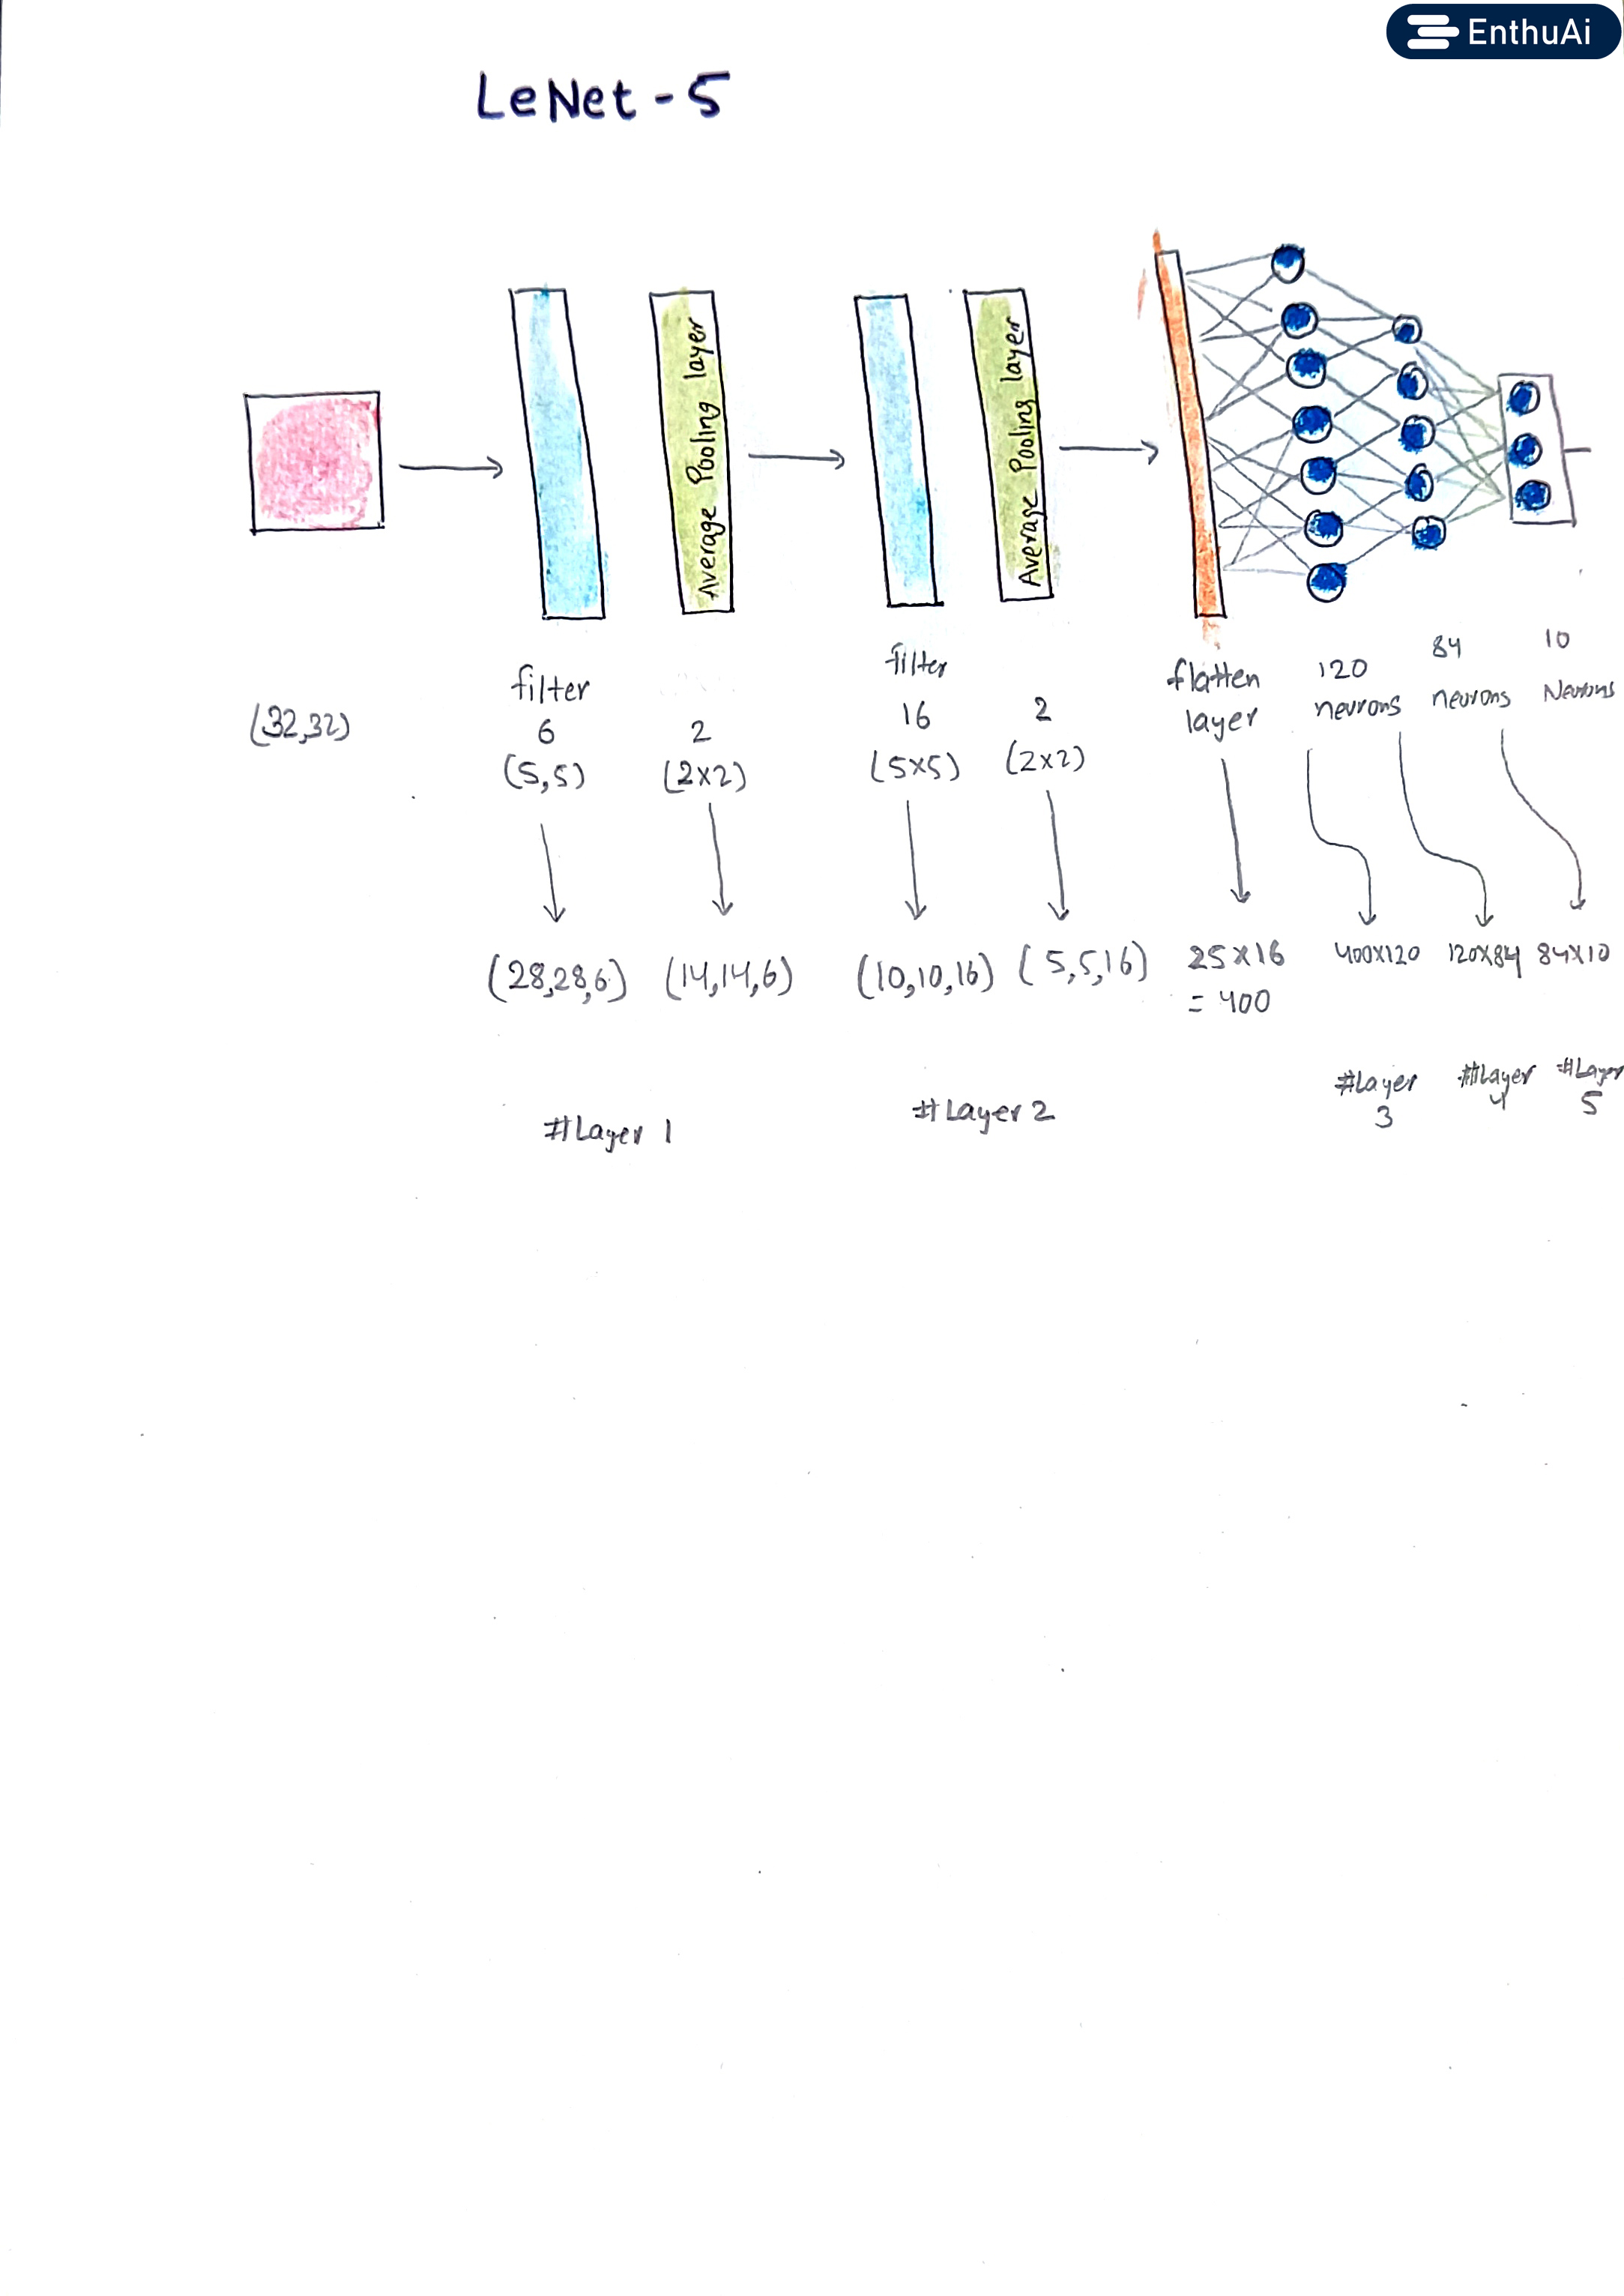 EnthuAi
LeNet-5
Average Pooling layer
Average Pooling layer
(32,32)
filter
6
(5,5)
2
(2x2)
filter
16
(5x5)
2
(2x2)
flatten
layer
120
neurons
84
neurons
10
Neurons
(28,28,6)
(14,14,6)
(10,10,16)
(5,5,16)
25x16
= 400
400x120
120x84
84x10
#Layer 1
#Layer 2
#Layer
3
#Layer
4
#Layer
5